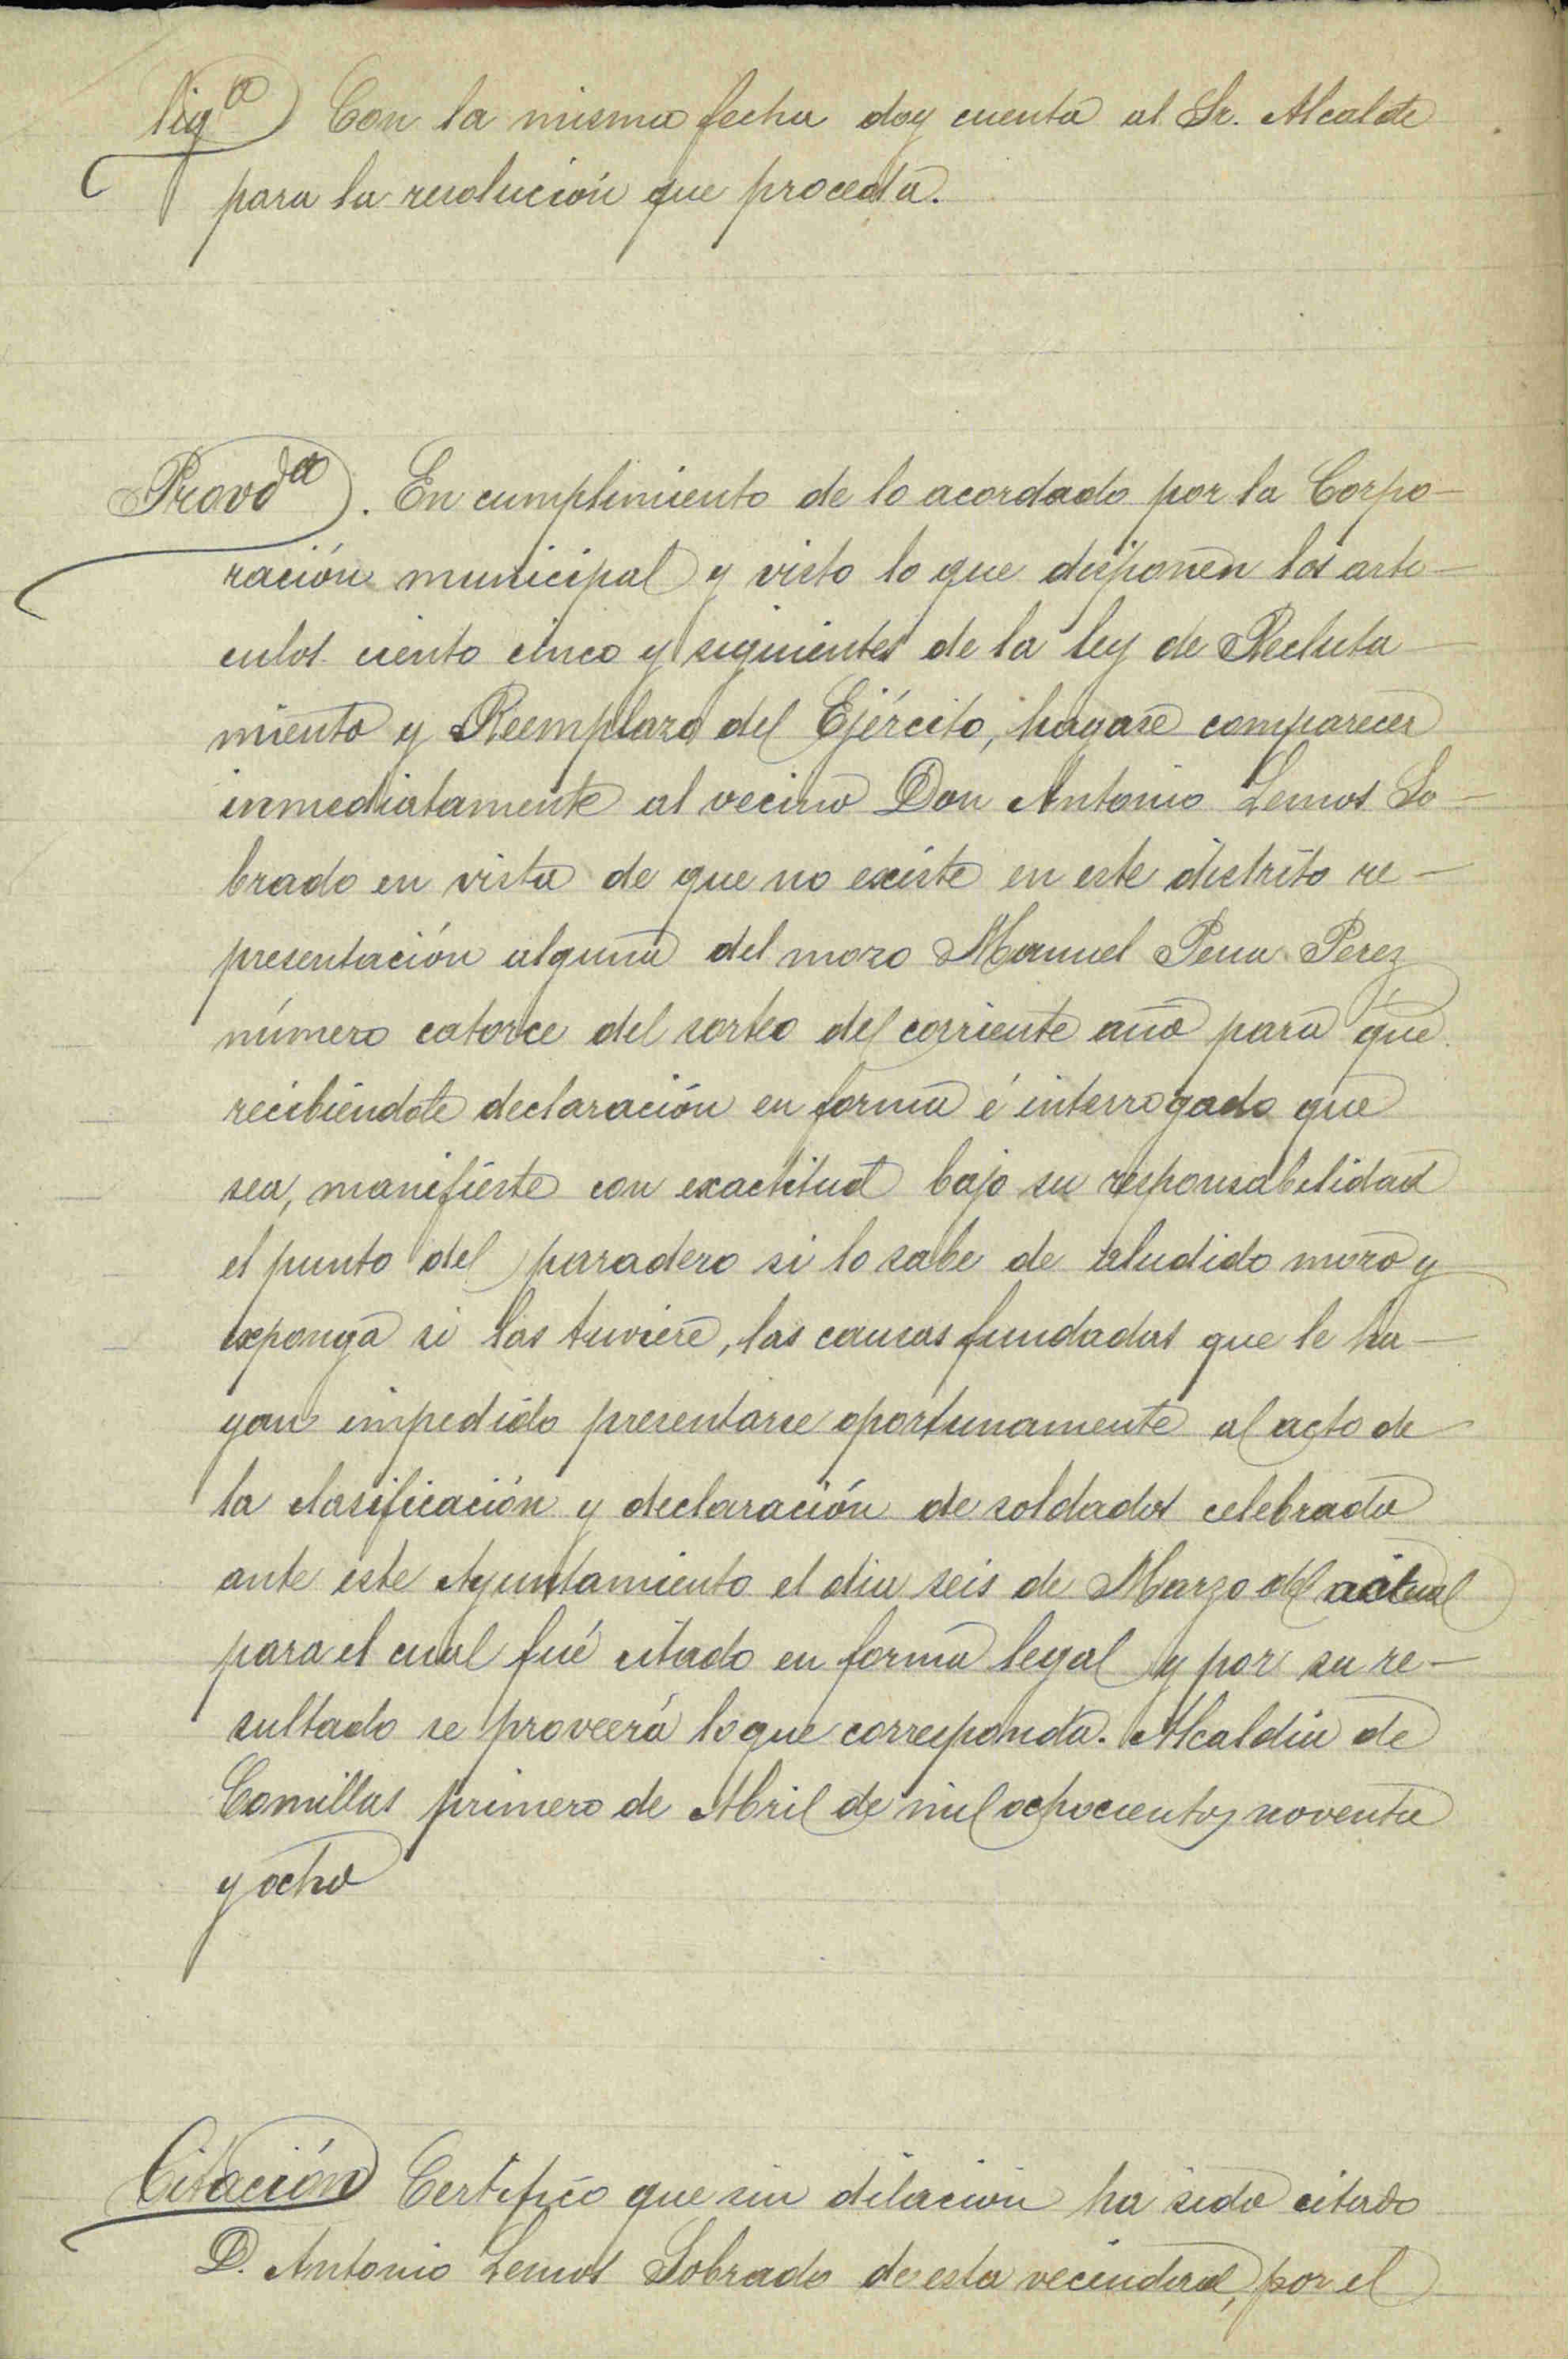 Dig.ª Con la misma fecha doy cuenta al Sr. Alcalde
para la resolución que proceda.
Provd.ª. En cumplimiento de lo acordado por la Corpo-
ración municipal y visto lo que disponen los artí-
culos ciento cinco y siguientes de la ley de Recluta-
miento y Reemplazo del Ejército, hagase comparecer
inmediatamente al vecino Don Antonio Lemos So-
brado en vista de que no existe en este distrito re-
presentación alguna del mozo Manuel Pena Perez
número catorce del sorteo del corriente año para que
recibiéndole declaración en forma é interrogado que
sea, manifieste con exactitud bajo su responsabilidad
el punto del paradero si lo sabe de aludido mozo y
exponga si las tuviere, las causas fundadas que le ha-
yan impedido presentarse oportunamente al acto de
la clasificación y declaración de soldados celebrado
ante este Ayuntamiento el dia seis de Marzo del actual
para el cual fué citado en forma legal y por su re-
sultado se proveerá lo que corresponda. Alcaldia de
Comillas primero de Abril de mil ochocientos noventa
y ocho
Citación Certifico que sin dilacion ha sido citado
D. Antonio Lemos Sobrado de esta vecindad, por el